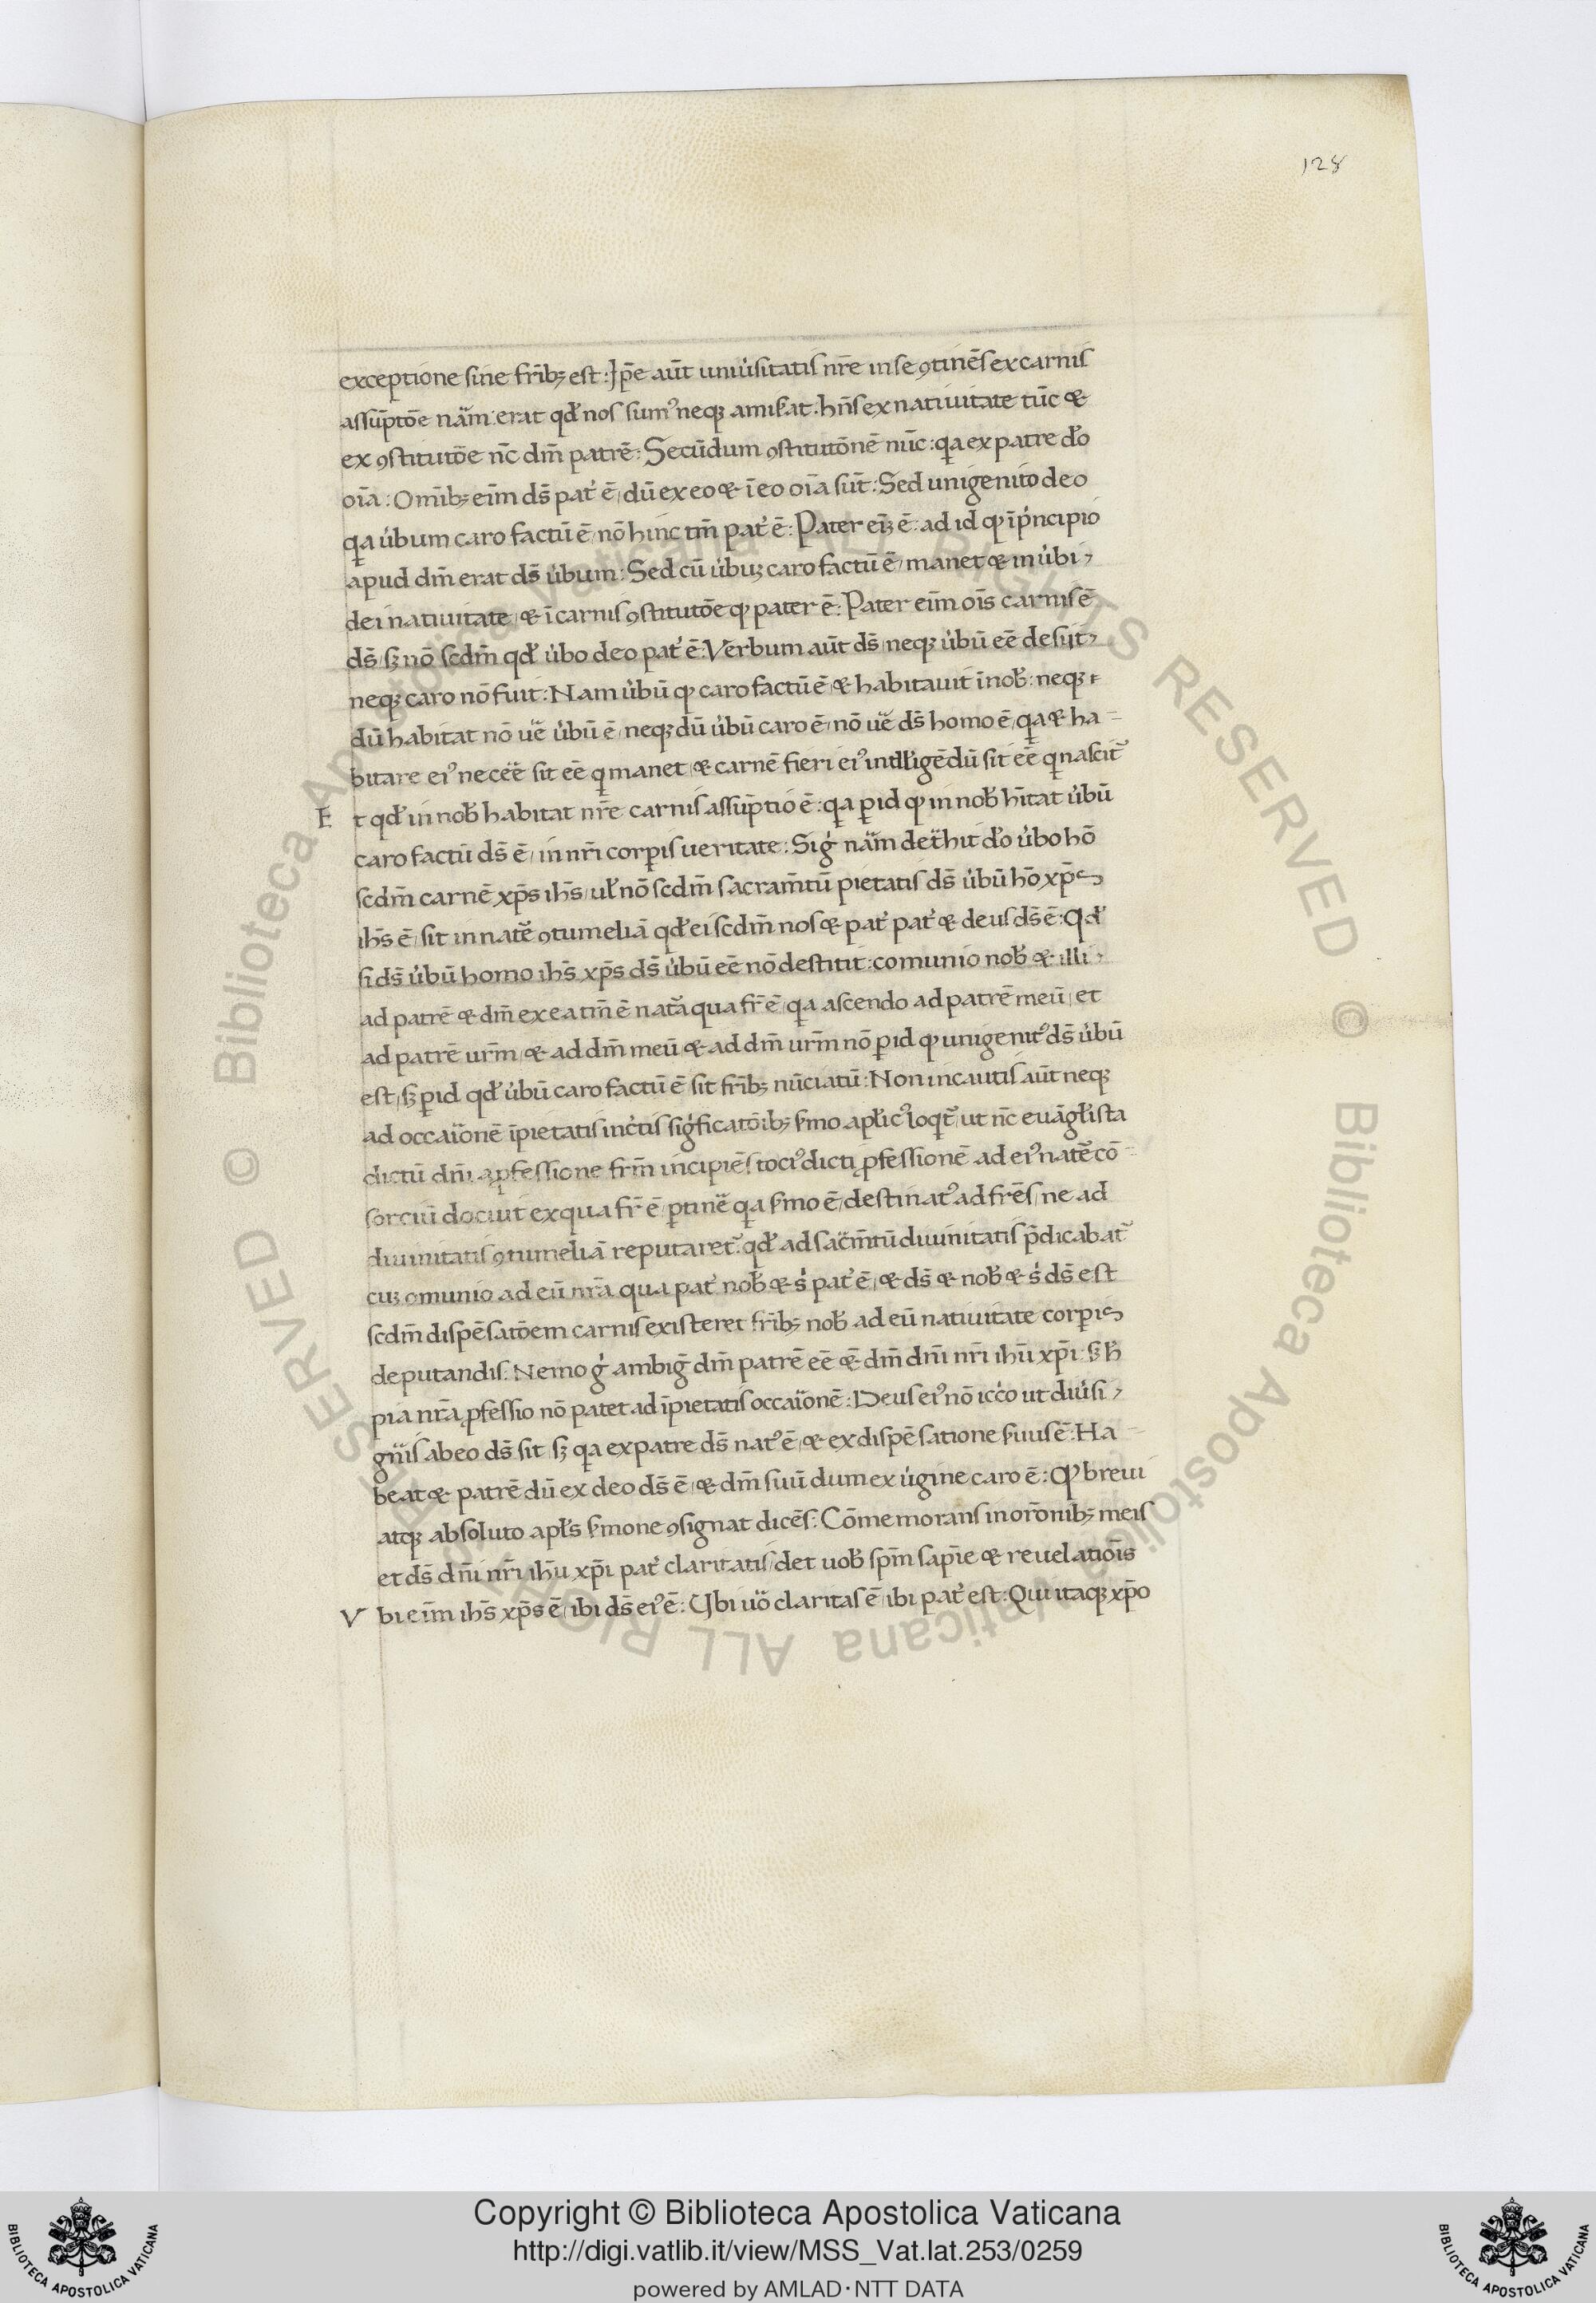 128
exceptione sine fr̄ib; est: Ip̄e aūt uniu̓sitatis nr̄e in se ꝯtinēs ex carnis
assūptōe nam̄: erat qđ nos sumꝰ neqꝫ amiserat. hn̄s ex nativitate tūc &
ex ꝯstitutōe nc̄ dm̄ patrē: Secūdum ꝯstitutōnē nūc: qa ex patre do
oīa: Omīb; eīm ds̄ pat̓ ē, dū ex eo & ī eo oīa sūt: Sed unigenito deo
qa u̓bum caro factū ē, nō hinc tm̄ pat̓ ē: Pater eīꝫ ē: ad id qꝫ ī pͥncipio
apud dm̄ erat ds̄ u̓bum: Sed cū u̓buꝫ caro factū ē, manet & in u̓bi,
dei nativitate, & ī carnis ꝯstitutōe qꝫ pater ē: Pater eīm oīs carnis ē
ds̄, sꝫ nō scdm̄ qđ u̓bo deo pat̓ ē: Verbum aūt ds̄, neqꝫ u̓bū eē desiit,
neqꝫ caro nō fuit: Nam u̓bū qꝫ caro factū ē, & habitavit ī nob̄: neqꝫ
dū habitat nō ue̓ u̓bū ē, neqꝫ dū u̓bū caro ē, nō ue̓ ds̄ homo ē, qa & ha-
bitare eiꝰ necēe sit eē qͥ manet, & carnē fieri eiꝰ intelligēdū sit eē qͥ nascit᷑
E t qđ in nob̄ habitat nr̄e carnis assūptio ē: qa ꝑ id qꝫ in nob̄ hītat u̓bū
caro factū ds̄ ē, in nr̄i corꝑis veritate: Sig̓ nam̄ det̓hit do u̓bo hō
scdm̄ carnē xp̄s ihs̄, ul̄ nō scdm̄ sacram̄tū pietatis ds̄ u̓bū hō xp̄s
ihs̄ ē, sit in natē ꝯtumeliā qđ ei scdm̄ nos & pat̓ pat̓ & deus ds̄ ē: Qđ
si ds̄ u̓bū homo ihs̄ xp̄s ds̄ u̓bū eē nō destitit: comunio nob̄ & illi,
ad patrē & dm̄ ex ea tm̄ ē nata̓ qua fr̄ ē, qa ascendo ad patrē meū, et
ad patrē ur̄m, & ad dm̄ meū, & ad dm̄ ur̄m nō ꝑ id qꝫ unigenitꝰ ds̄ u̓bū
est, sꝫ ꝑ id qđ u̓bū caro factū ē sit fr̄ib; nūciatū: Non incautis aūt neqꝫ
ad occaïonē īpietatis inc̓tis sig̓ficatōib; sͬmo apl̄icꝰ loqt᷑, ut nc̄ euāgl̄ista
dictū dn̄i a ꝓfessione fr̄m incipiēs tociꝰ dicti ꝓfessionē ad eiꝰ natē cō-
sorciū docuit ex qua fr̄ ē, ꝑtine̓ qa sͬmo ē, destinatꝰ ad fr̄es, ne ad
divinitatis ꝯtumeliā reputaret᷑. qđ ad sac̓m̄tū divinitatis p̄dicabat᷑
cuꝫ omunio ad eū nr̄a qua pat̓ nob̄ & s̓ pat̓ ē, & ds̄ & nob̄ & s̓ ds̄ est
scdm̄ dispēsatōem carnis existeret fr̄ib; nob̄ ad eū nativitate corꝑis
deputandis: Nemo g̓ ambig̓ dm̄ patrē eē & dm̄ dn̄i nr̄i ihū xp̄i: sꝫ h̄
pia nr̄a ꝓfessio nō patet ad īpietatis occaïonē: Deus eiꝰ nō icc̓o ut diu̓si,
gn̓is ab eo ds̄ sit, sꝫ qa ex patre ds̄ natꝰ ē, & ex dispēsatione sͬuus ē: Ha-
beat & patrē dū ex deo ds̄ ē, & dm̄ suū dum ex u̓gine caro ē: Qꝫ brevi
atqꝫ absoluto apl̄s sͬmone ꝯsignat dicēs: Cōmemorans in orōnib; meis
et ds̄ dn̄i nr̄i ihū xp̄i pat̓ claritatis, det uob̄ sp̄m sapīe & revelatiōis
V bi eīm ihs̄ xp̄s ē, ibi ds̄ eiꝰ ē: Ubi u̓o claritas ē, ibi pat̓ est: Qui itaqꝫ xp̄o
Copyright © Biblioteca Apostolica Vaticana
http://digi.vatlib.it/view/MSS_Vat.lat.253/0259
powered by AMLAD·NTT DATA